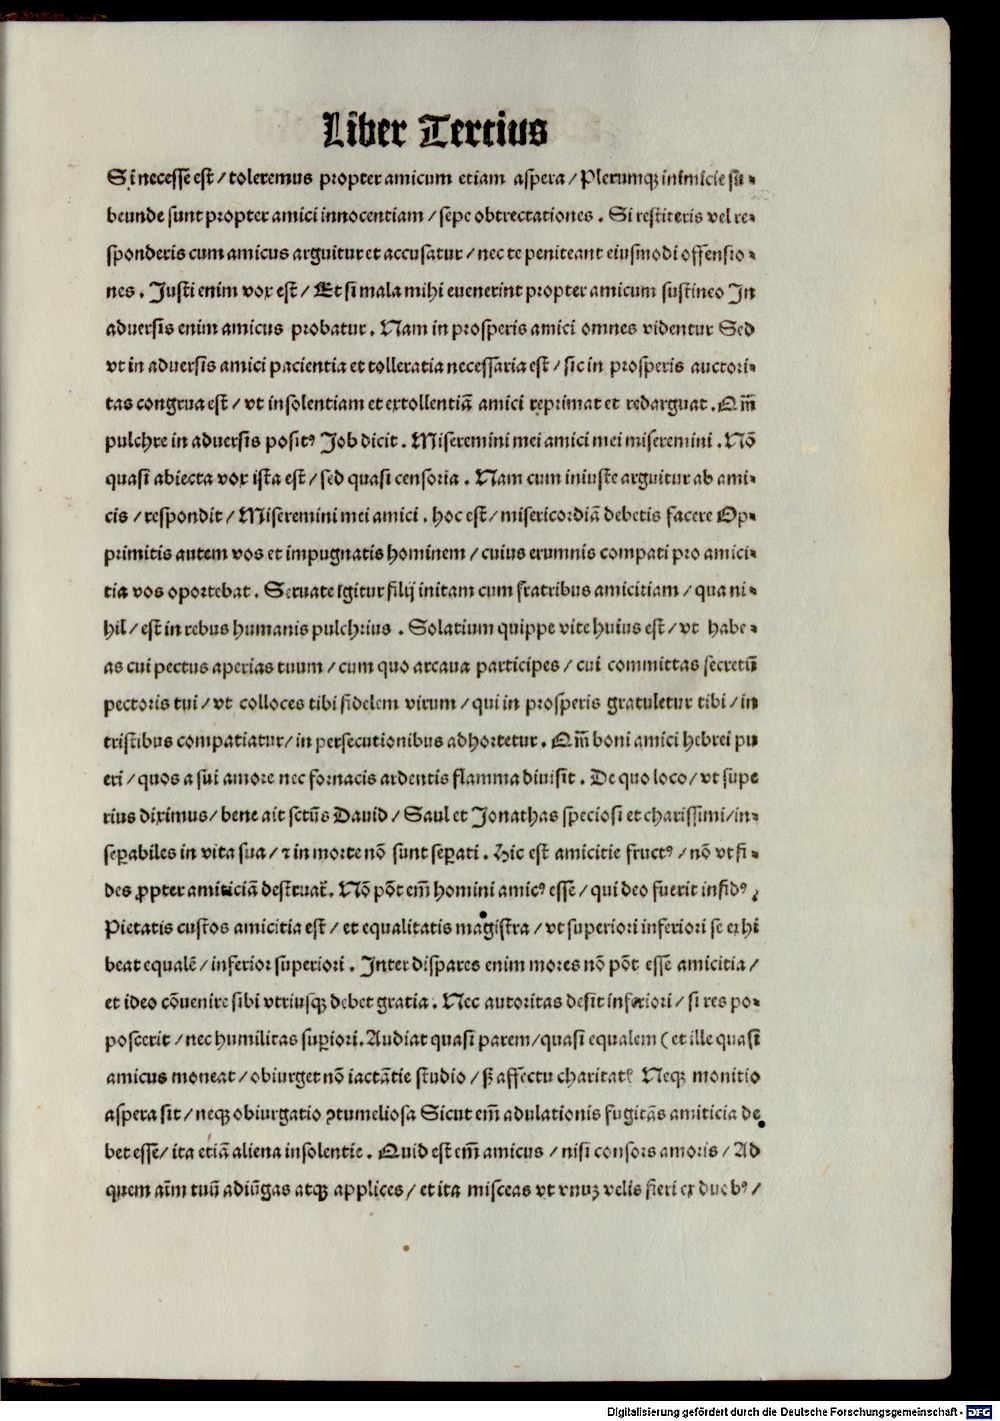 Liber Tertius
Si necesse est / toleremus propter amicum etiam aspera / Plerumqꝫ inimicie su⸗
beunde sunt propter amici innocentiam / sepe obtrectationes . Si restiteris vel re⸗
sponderis cum amicus arguitur et accusatur / nec te peniteant eiusmodi offensio⸗
nes . Justi enim vox est / Et si mala mihi euenerint propter amicum sustineo In
aduersis enim amicus probatur . Nam in prosperis amici omnes videntur Sed
vt in aduersis amici pacientia et tolleratia necessaria est / sic in prosperis auctori⸗
tas congrua est / vt insolentiam et extollentiā amici reprimat et redarguat . Qm̄
pulchre in aduersis positꝰ Job dicit . Miseremini mei amici mei miseremini . Nō
quasi abiecta vox ista est / sed quasi censoria . Nam cum iniuste arguitur ab ami⸗
cis / respondit / Miseremini mei amici . hoc est / misericordiā debetis facere Op⸗
primitis autem vos et impugnatis hominem / cuius erumnis compati pro amici⸗
tia vos oportebat . Seruate igitur filij initam cum fratribus amicitiam / qua ni⸗
hil / est in rebus humanis pulchrius . Solatium quippe vite huius est / vt habe⸗
as cui pectus aperias tuum / cum quo arcana participes / cui committas secretū
pectoris tui / vt colloces tibi fidelem virum / qui in prosperis gratuletur tibi / in
tristibus compatiatur / in persecutionibus adhortetur . Qm̄ boni amici hebrei pu
eri / quos a sui amore nec fornacis ardentis flamma diuisit . De quo loco / vt supe
rius diximus / bene ait sctūs Dauid / Saul et Jonathas speciosi et charissimi / in⸗
seꝑabiles in vita sua / ⁊ in morte nō sunt seꝑati . Hic est amicitie fructꝰ / nō vt fi⸗
des ꝓpter amiticiā destruat̄ . Nō pōt em̄ homini amicꝰ esse / qui deo fuerit infidꝰ ;
Pietatis custos amicitia est / et equalitatis magistra / vt superiori inferiori se exhi
beat equalē / inferior superiori . Inter dispares enim mores nō pōt esse amicitia /
et ideo cōuenire sibi vtriusqꝫ debet gratia . Nec autoritas desit inferiori / si res po⸗
poscerit / nec humilitas suꝑiori . Audiat quasi parem / quasi equalem ( et ille quasi
amicus moneat / obiurget nō iactātie studio / ẜ affectu charitatꝭ Neqꝫ monitio
aspera sit / neqꝫ obiurgatio ꝯtumeliosa Sicut em̄ adulationis fugitās amiticia de
bet esse / ita etiā aliena insolentie . Quid est em̄ amicus / nisi consors amoris / Ad
quem aīm tuū adiūgas atqꝫ applices / et ita misceas vt vnuꝫ velis fieri ex duobꝰ /
Digitalisierung gefördert durch die Deutsche Forschungsgemeinschaft - DFG